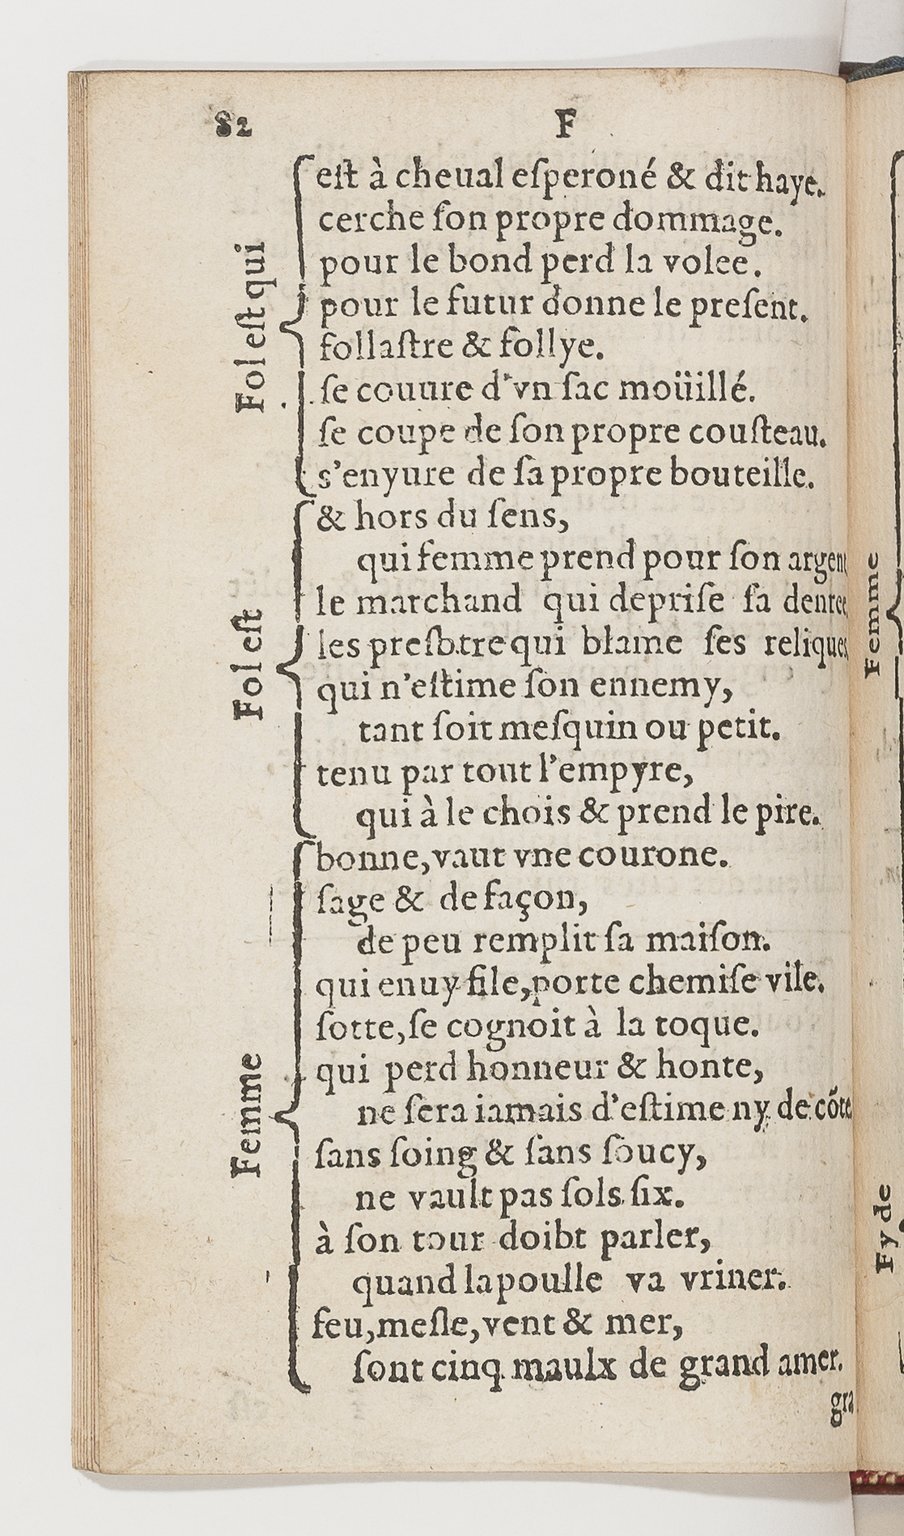 82
F
Fol est qui
eſt à cheual eſperoné & dit haye.
cerche ſon propre dommage.
pour le bond perd la volee.
pour le futur donne le preſent.
follaſtre & follye.
ſe couure d'vn ſac moüillé.
ſe coupe de ſon propre couſteau.
s'enyure de ſa propre bouteille.
Fol eſt
& hors du ſens,
qui femme prend pour ſon argent
le marchand qui depriſe ſa denree
les preſbtre qui blame ſes reliques
qui n'eſtime ſon ennemy,
tant ſoit meſquin ou petit.
tenu par tout l'empyre,
qui à le chois & prend le pire.
Femme
bonne, vaut vne courone.
ſage & de façon,
de peu remplit ſa maiſon.
qui enuy file, porte chemiſe vile.
ſotte, ſe cognoit à la toque.
qui perd honneur & honte,
ne ſera iamais d'eſtime ny de cõte
ſans ſoing & ſans ſoucy,
ne vault pas ſols ſix.
à ſon tour doibt parler,
quand la poulle va vriner.
feu, meſle, vent & mer,
ſont cinq maulx de grand amer.
gra
Femme
Fy de